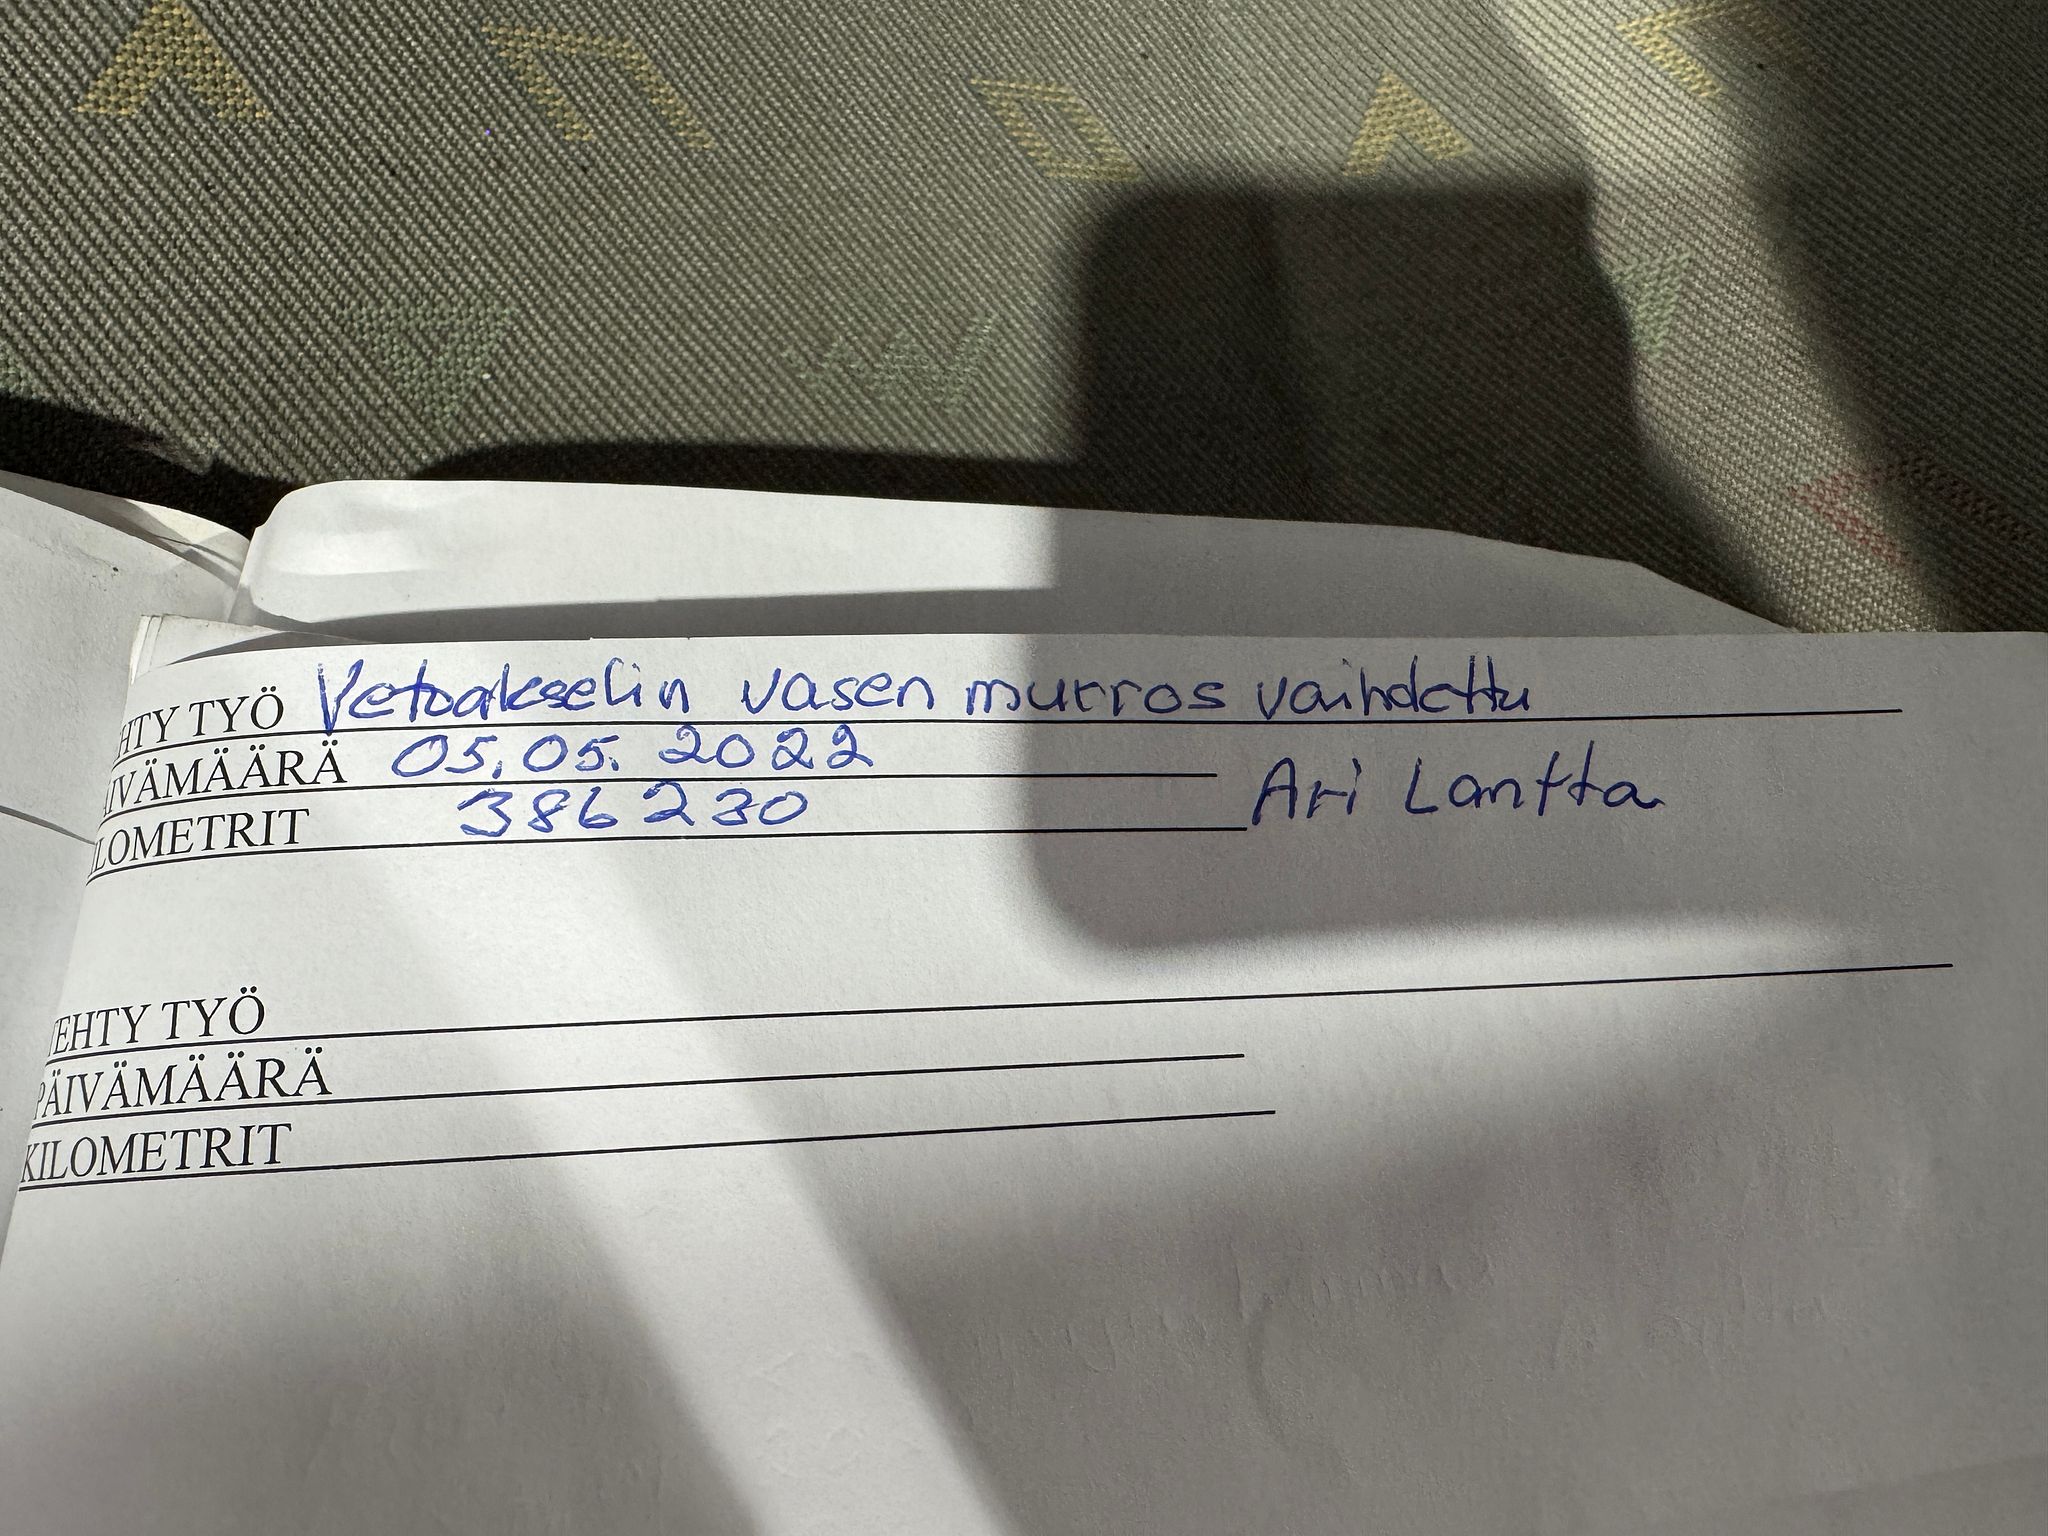 EHTY TYÖ Vetoakselin vasen murros vaihdettu
ÄIVÄMÄÄRÄ 05.05.2022
ILOMETRIT 386230 Ari Lantta
TEHTY TYÖ
PÄIVÄMÄÄRÄ
KILOMETRIT